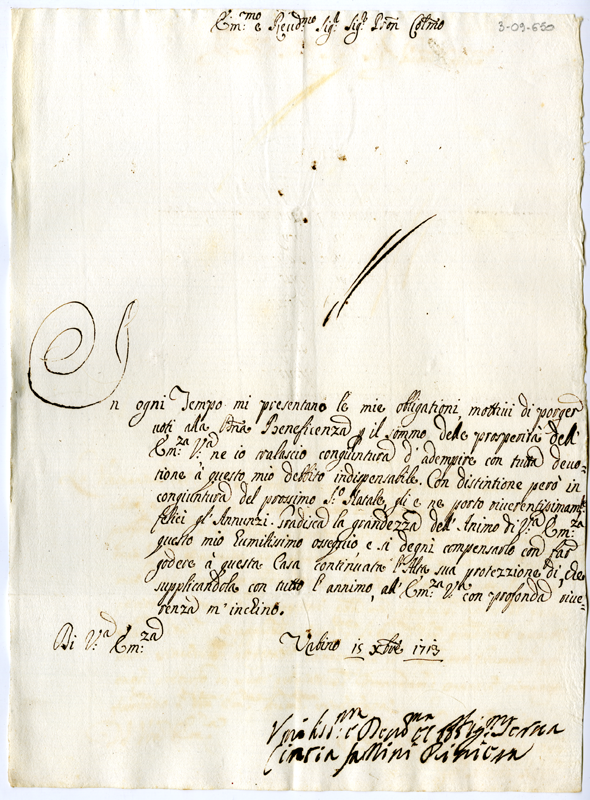 Em:mo e Reud:mo Sig.r Sig.r Pron Colmo
3-09-650
In ogni Tempo mi presentano le mie obligationi mottivi di porger
uoti alla Beneficenza p il sommo delle prosperità dell'
Em:za V:ra ne io tralascio congiuntura d'adempire con tutta deuo-
tione à questo mio debito indispensabile. Con distintione però in
congiuntura del prossimo S:to Natale, gli e ne porto riuerentissimam.te
felici gl'Annunzi. Gradisca la grandezza dell'Animo di V:ra Em:za
questo mio humilissimo ossequio e si degni compensarlo con far
godere à questa Casa continuata l'Alta sua protezzione di che
supplicandola con tutto l'annimo, all'Em:za V:ra con profonda riue-
renza m'inchino.
Di V:ra Em:za
Vrbino 15 xbre 1713
Serua
Cintia